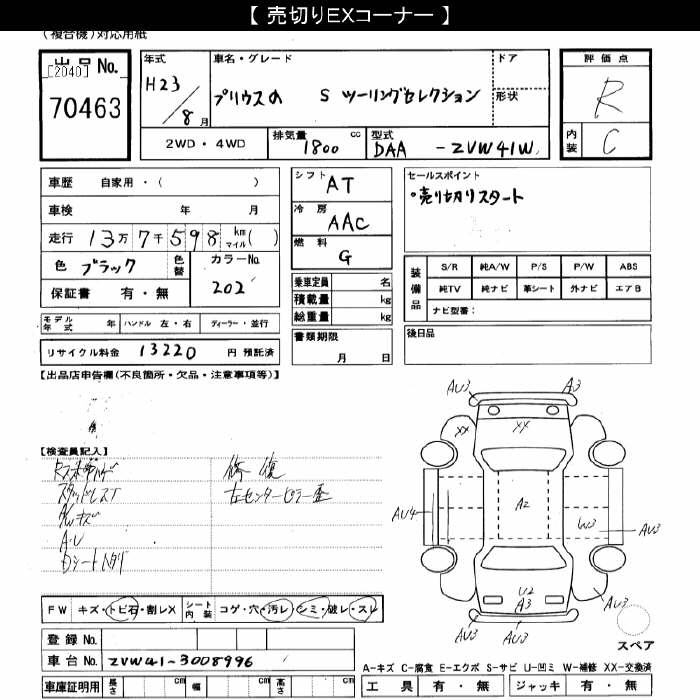 【 売切りEXコーナー 】
(複合機)対応用紙
出品 No.
[2040]
70463
年式
H23/8月
車名・グレード
プリウスα S ツーリングセレクション
ドア
形状
評価点
R
内装
C
2WD・4WD
排気量 1800 cc
型式 DAA - ZVW41W
車歴 自家用・( )
車検 年 月
走行 13万7千598 km マイル( )
色 ブラック
色替
カラーNo. 202
保証書 有・無
シフト AT
冷房 AAC
燃料 G
乗車定員 名
積載量 kg
総重量 kg
書類期限
月 日
セールスポイント
・売り切りスタート
装備品
S/R 純A/W P/S P/W ABS
純TV 純ナビ 革シート 外ナビ エアB
ナビ型番:
後日品
モデル年式 年 ハンドル 左・右 ディーラー・並行
リサイクル料金 13220 円 預託済
【出品店申告欄(不良箇所・欠品・注意事項等)】
【検査員記入】
修復
スタッドレス
左センターピラー歪
A・U
AU3
A3
XX
XX
A2
AU4
W3
AU3
U2
A3
AU3
AU3
AU3
スペア
FW キズ・トビ石・割レX
シート内装 コゲ・穴・汚レ・シミ・破レ・スレ
登録 No.
車台 No. ZVW41-3008996
車庫証明用 長さ cm 幅 cm 高さ cm
A-キズ C-腐食 E-エクボ S-サビ U-凹ミ W-補修 XX-交換済
工具 有・無 ジャッキ 有・無